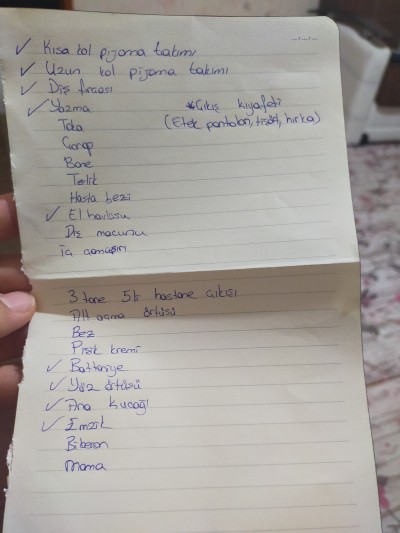 ✓ Kısa kol pijama takımı
✓ Uzun kol pijama takımı
✓ Diş fırçası
✓ Yazma
*Çıkış kıyafeti
(Etek pantolon, tişört, hırka)
Toka
Çorap
Bone
Terlik
Hasta bezi
✓ El havlusu
Diş macunu
İç çamaşırı
3 tane 5li hastane çıkışı
Alt açma örtüsü
Bez
Pişik kremi
✓ Battaniye
✓ Yüz örtüsü
✓ Ana kucağı
✓ Emzik
Biberon
Mama